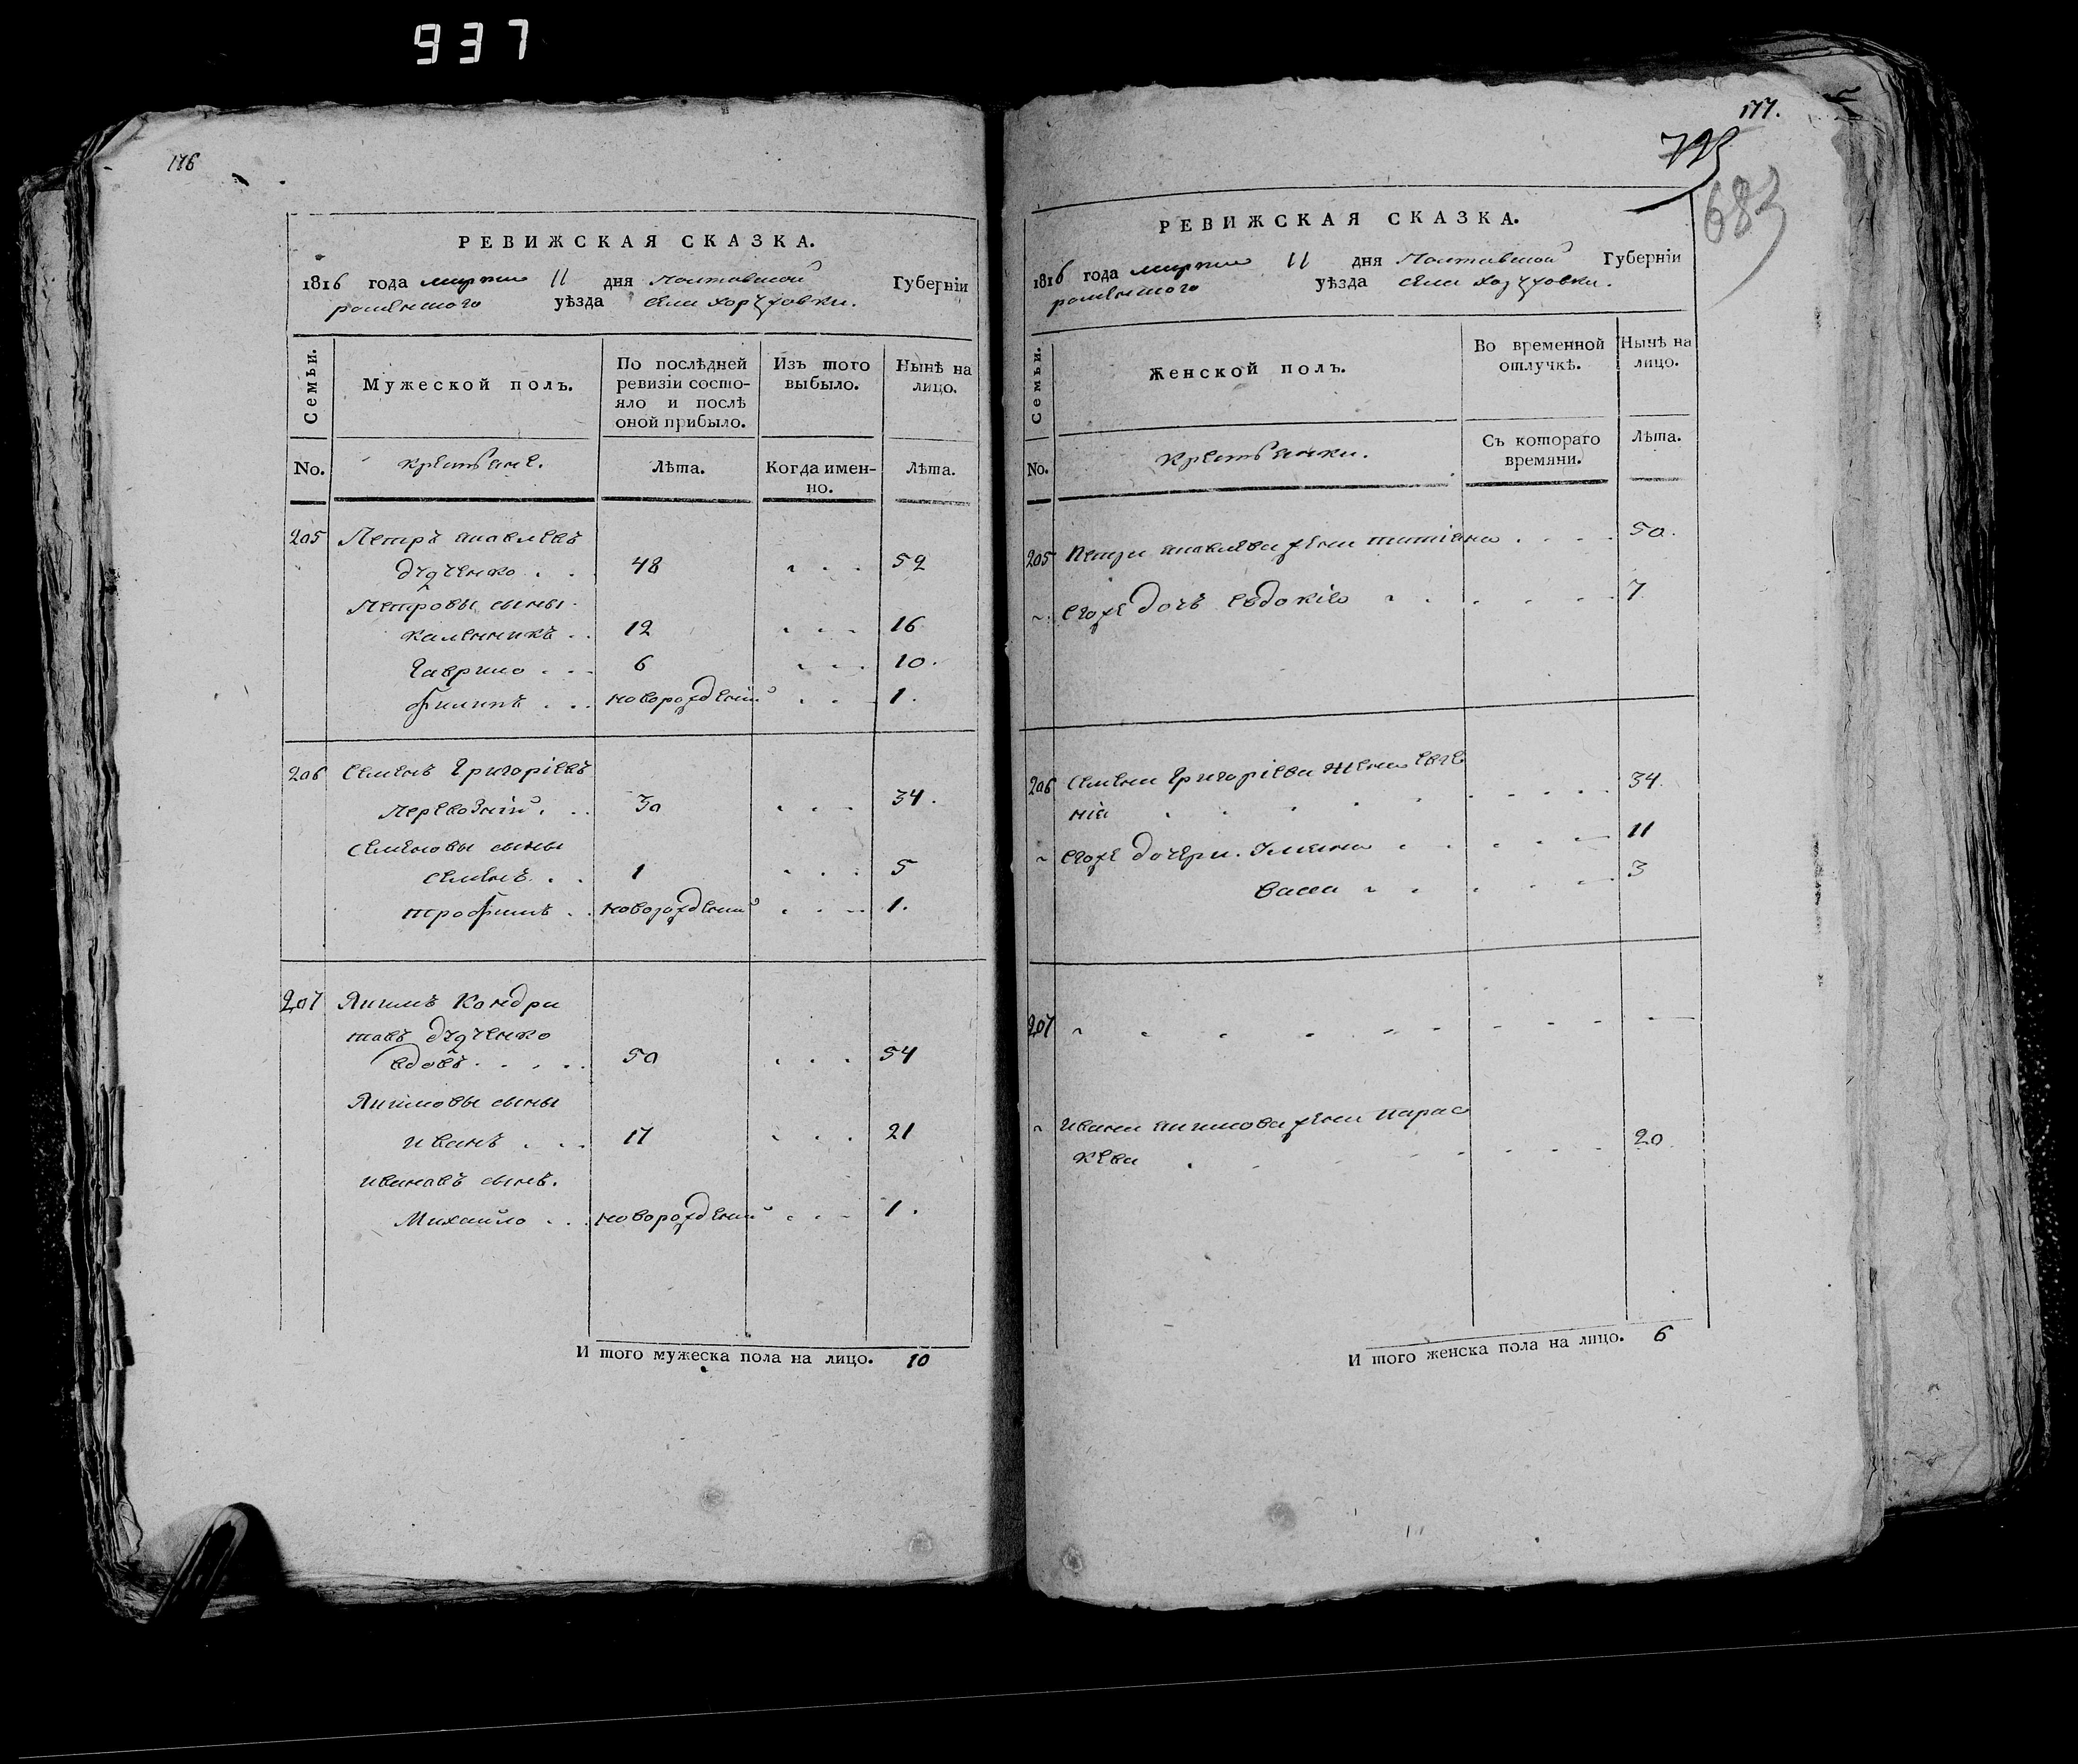 937
176
РЕВИЖСКАЯ СКАЗКА.
1816 года марта 11 дня Полтавской Губерніи
роменского уѣзда села хоружовки.
Семьи.
Мужеской полъ.
По послѣдней
ревизіи состо-
яло и послѣ
оной прибыло.
Изъ того
выбыло.
Нынѣ на
лицо.
No.
крестьяне.
Лѣта.
Когда имен-
но.
Лѣта.
205 Петръ яковлевъ
дудченко . . 48 . . . 52
Петровы сыны.
каленникъ . . 12 . . . 16
Гаврило . . . 6 . . . 10.
филипъ . . . новорожденій . . . 1.
206 Семенъ Григоріевъ
перевозній . . 30 . . . 34.
Семеновы сыны
семенъ . . 1 . . . 5
трофимъ . . новорожденій . . . 1.
207 Якимъ Кондра
товъ дудченко
вдовъ . . . . . 50 . . . 54
Якимовы сыны
иванъ . . . 17 . . . 21
ивановъ сынъ.
Михайло . . . новорожденій . . . 1.
И того мужеска пола на лицо. 10
177.
795
683
РЕВИЖСКАЯ СКАЗКА.
1816 года марта 11 дня Полтавской Губерніи
роменского уѣзда села хоружовки.
Семьи.
Женской полъ.
Во временной
отлучкѣ.
Нынѣ на
лицо.
No.
крестьянки.
Съ котораго
времяни.
Лѣта.
205 Петра яковлева жена татіана . . . . 50.
~ егоже дочь евдокія . . . . . . 7
206 Семена Григоріева жена евге
нія . . . . . . . . . . 34.
~ егоже дочери. Ульяна . . . . . 11
Васса . . . . . . 3
207 ~ - - - - - - - - - -
~ ивана якимова жена парас
кева . . . . . . . . . 20.
И того женска пола на лицо. 6